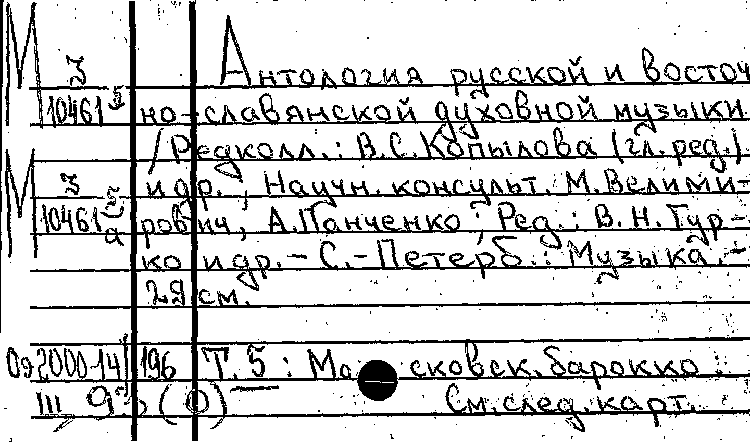 М З Антология русской и восточ
10461 но-славянской духовной музыки
/Редколл.: В.С. Копылова (гл. ред.)
М З и др.; Научн. консульт. М. Велими-
10461 рович, А. Панченко; Ред.: В. Н. Гур-
а ко и др. - С.-Петерб.: Музыка. -
29 см.
Оэ 2000-14 196 Т. 5: Московск. барокко.
III (0) См. след. карт.